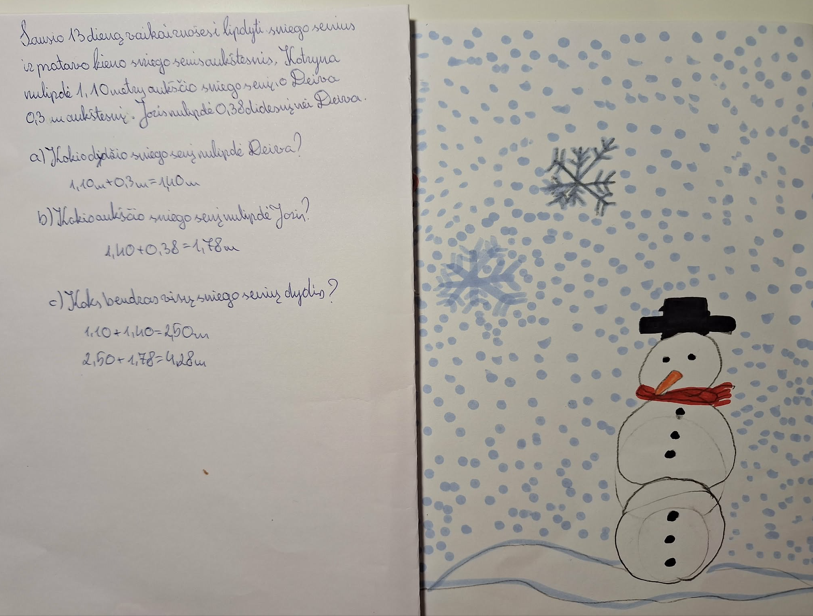 Sausio 13 dieną vaikai ruošėsi lipdyti sniego senius
ir matavo kieno sniego senis aukštesnis. Kotryna
nulipdė 1,10 metrų aukščio sniego senį, o Deiva
0,3 m aukštesnį. Joris nulipdė 0,38 didesnį nei Deiva.
a) Kokio dydžio sniego senį nulipdė Deiva?
1,10m+0,3m=1,40m
b) Kokio aukščio sniego senį nulipdė Joris?
1,40+0,38=1,78m
c) Koks bendras visų sniego senių dydis?
1,10+1,40=2,50m
2,50+1,78=4,28m